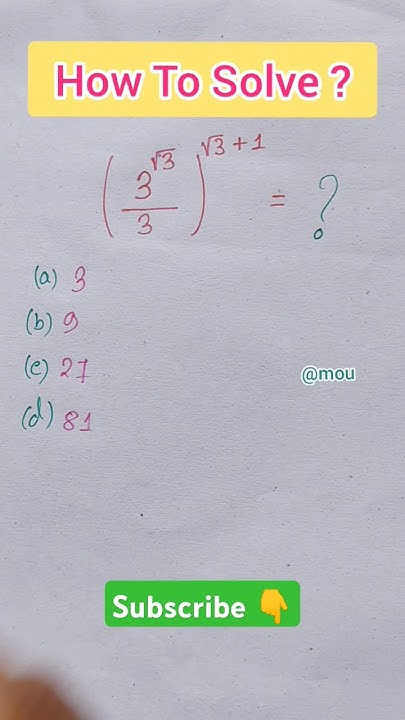 How To Solve ?
(3^√3 / 3)^√3 + 1 = ?
(a) 3
(b) 9
(c) 27
@mou
(d) 81
Subscribe 👇